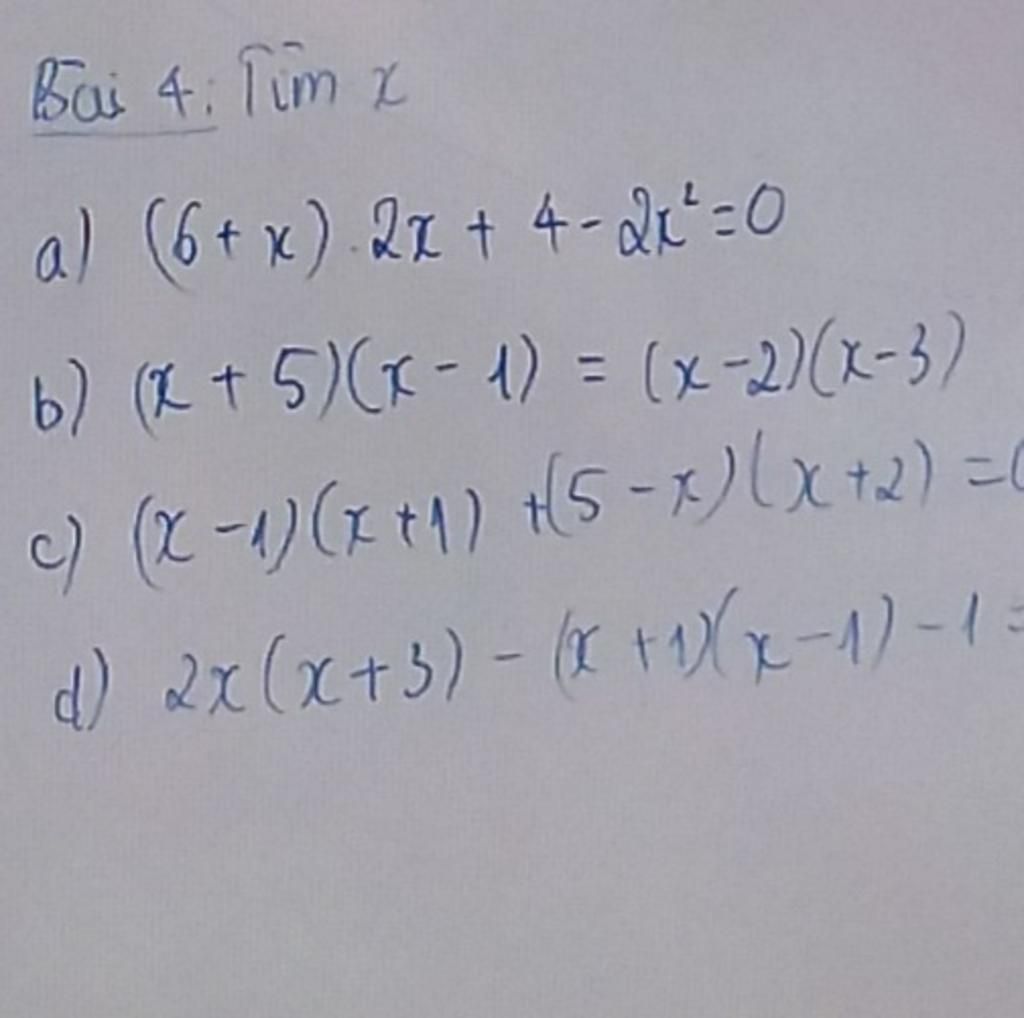 Bài 4: Tìm x
a) (6 + x) . 2x + 4 - 2x² = 0
b) (x + 5)(x - 1) = (x - 2)(x - 3)
c) (x - 1)(x + 1) + (5 - x)(x + 2) = 0
d) 2x(x + 3) - (x + 1)(x - 1) - 1 =